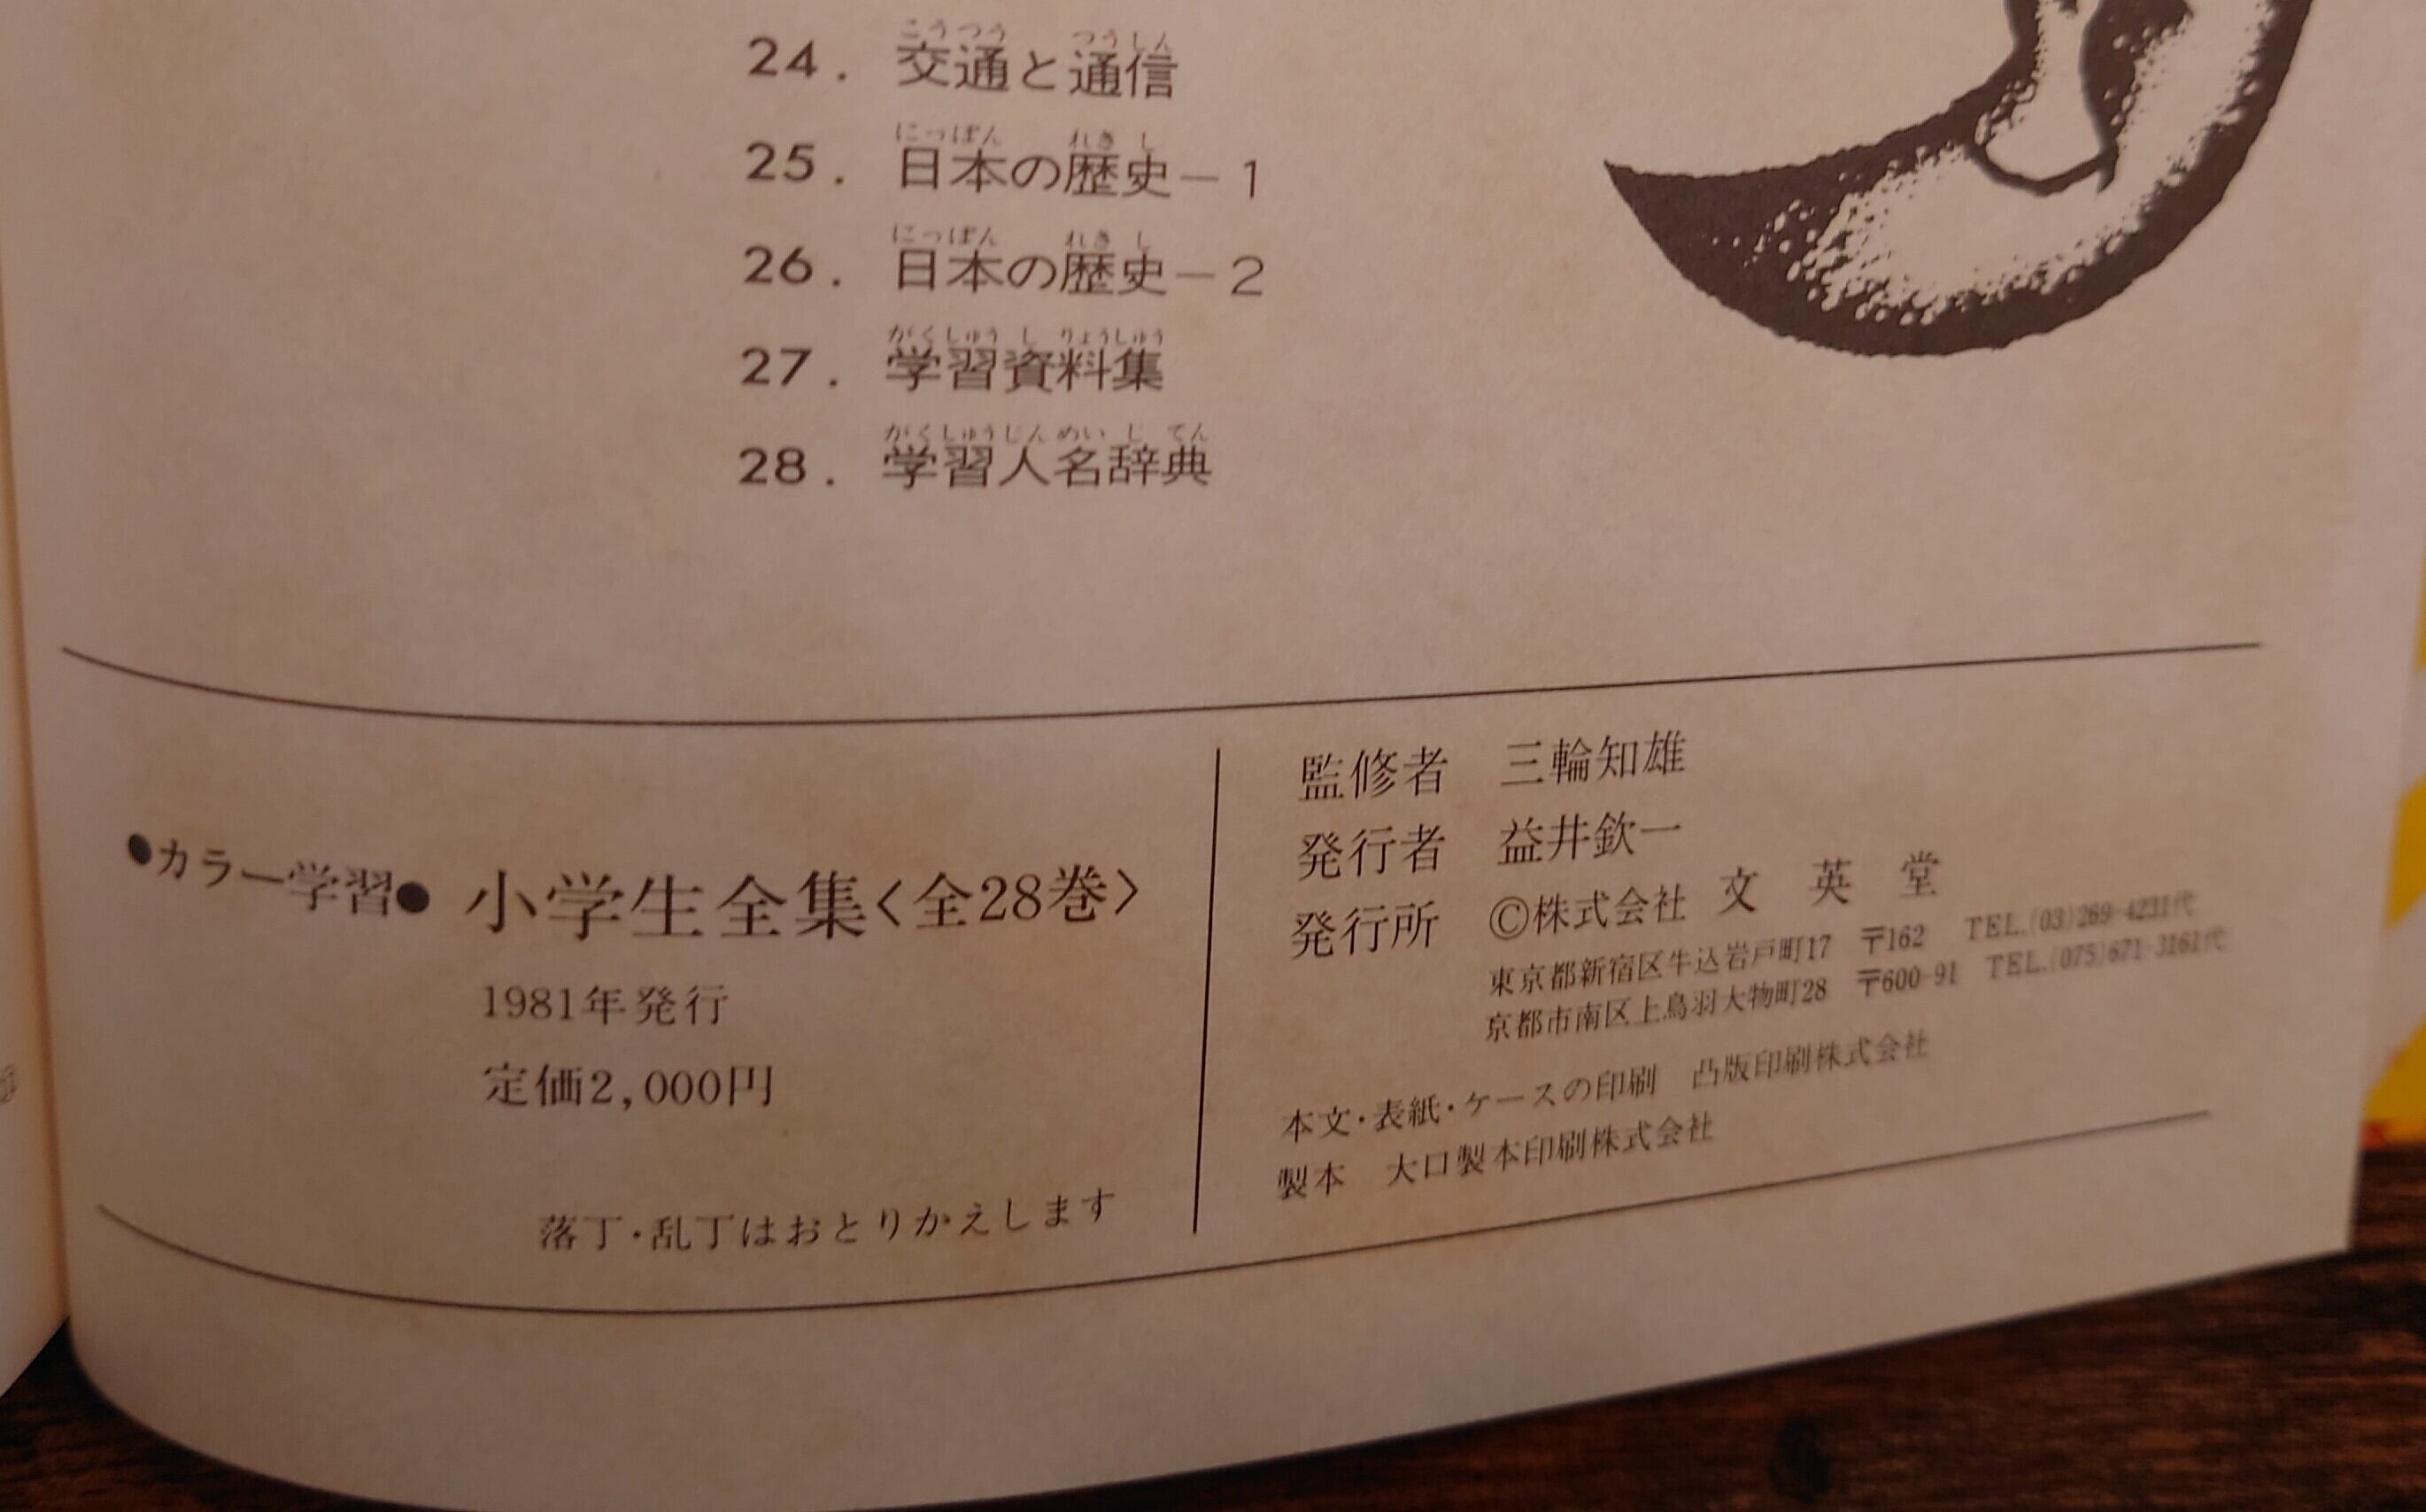 24. 交通と通信
25. 日本の歴史－1
26. 日本の歴史－2
27. 学習資料集
28. 学習人名辞典
●カラー学習● 小学生全集〈全28巻〉
1981年発行
定価2,000円
落丁・乱丁はおとりかえします
監修者 三輪知雄
発行者 益井欽一
発行所 ©株式会社 文英堂
東京都新宿区牛込岩戸町17 〒162 TEL.(03)269-4231代
京都市南区上鳥羽大物町28 〒600-91 TEL.(075)671-3161代
本文・表紙・ケースの印刷 凸版印刷株式会社
製本 大口製本印刷株式会社